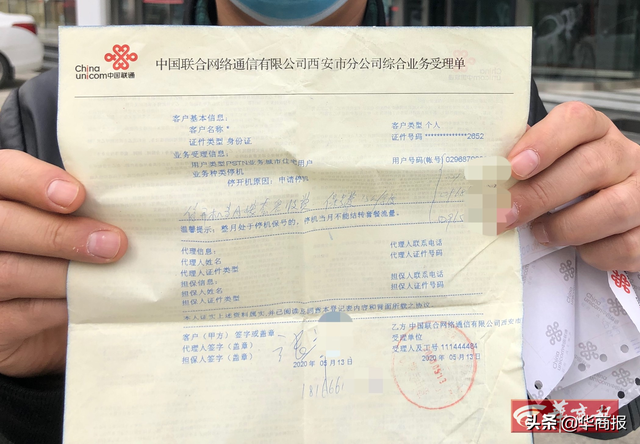 China
unicom中国联通
中国联合网络通信有限公司西安市分公司综合业务受理单
客户基本信息:
客户名称 *
客户类型 个人
证件类型 身份证
证件号码 **************2652
业务受理信息:
用户类型PSTN业务城市住宅用户
用户号码(帐号) 029687
业务种类停机
停开机原因: 申请停机
温馨提示: 整月处于停机保号的, 停机当月不能结转套餐流量。
代理信息:
代理人联系电话
代理人姓名
代理人证件号码
代理人证件类型
担保信息:
担保人联系电话
担保人姓名
担保人证件号码
担保人证件类型
客户(甲方) 签字或盖章
乙方 中国联合网络通信有限公司西安市
代理人签字(盖章)
受理单位
担保人签字(盖章)
受理人及工号 111444464
2020 年 05月 13日
2020 年 05月 13日
华商报
头条@华商报